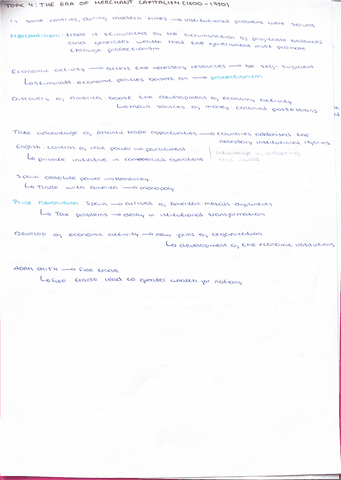 TOPIC 4: THE ERA OF MERCHANT CAPITALISM (1500-1750)
In some countries, during modern times → institutional problems were solved
Mercantilism: trade is stimulated by the accumulation of profitable balances
and generates wealth that the government must promote
through protectionism
Economic activity → access the necessary resources → be self-sufficient
↳ stimulate economic policies based on → protectionism
Discovery of America: boost the development of economic activity
↳ main sources of money: colonial possessions
Take advantage of Atlantic trade opportunities → countries addressed the
necessary institutional reforms
English control of real power → parliament
↳ private initiative in commercial operations
Spain absolute power → monarchy
↳ Trade with America → monopoly
Price Revolution: Spain → arrival of American metals
↳ Tax problems → delay in institutional transformation
Develop of economic activity → new forms of organization
↳ development of the economic institutions
ADAM SMITH → Free trade
↳ Free trade lead to greater wealth for nations